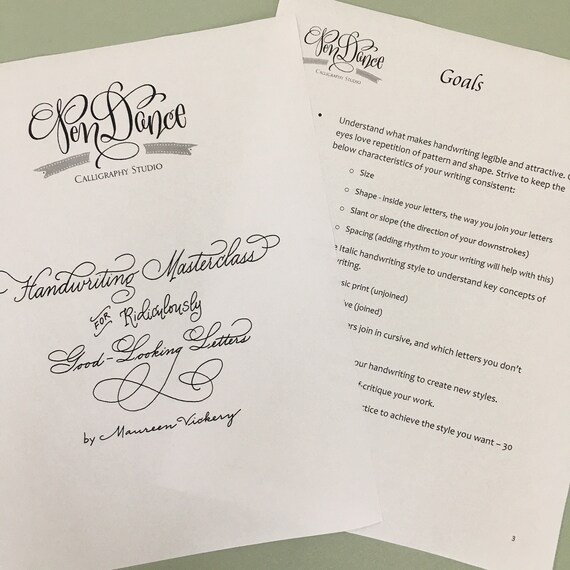 Pen Dance
CALLIGRAPHY STUDIO
Handwriting Masterclass
FOR Ridiculously
Good-Looking Letters
by Maureen Vickery
Pen Dance
CALLIGRAPHY STUDIO
Goals
• Understand what makes handwriting legible and attractive.
eyes love repetition of pattern and shape. Strive to keep the
below characteristics of your writing consistent:
o Size
o Shape - inside your letters, the way you join your letters
o Slant or slope (the direction of your downstrokes)
o Spacing (adding rhythm to your writing will help with this)
Italic handwriting style to understand key concepts of
print (unjoined)
(joined)
join in cursive, and which letters you don't
handwriting to create new styles.
critique your work.
to achieve the style you want – 30
3